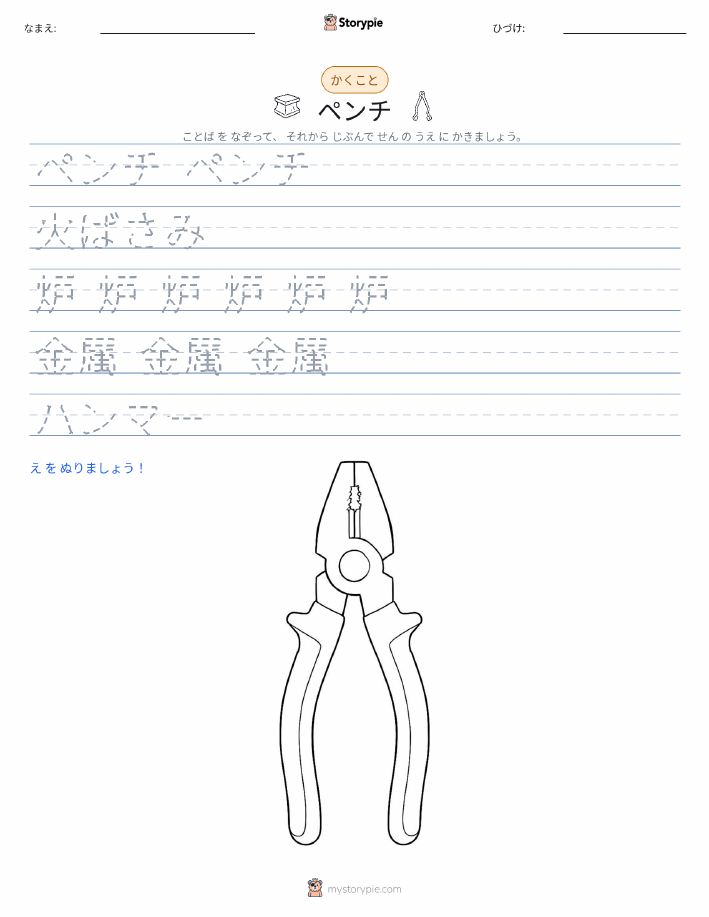 なまえ:
Storypie
ひづけ:
かくこと
ペンチ
ことば を なぞって、 それから じぶんで せん の うえ に かきましょう。
ペンチ ペンチ
火ばさみ
炉 炉 炉 炉 炉 炉
金属 金属 金属
ハンマー
え を ぬりましょう！
mystorypie.com